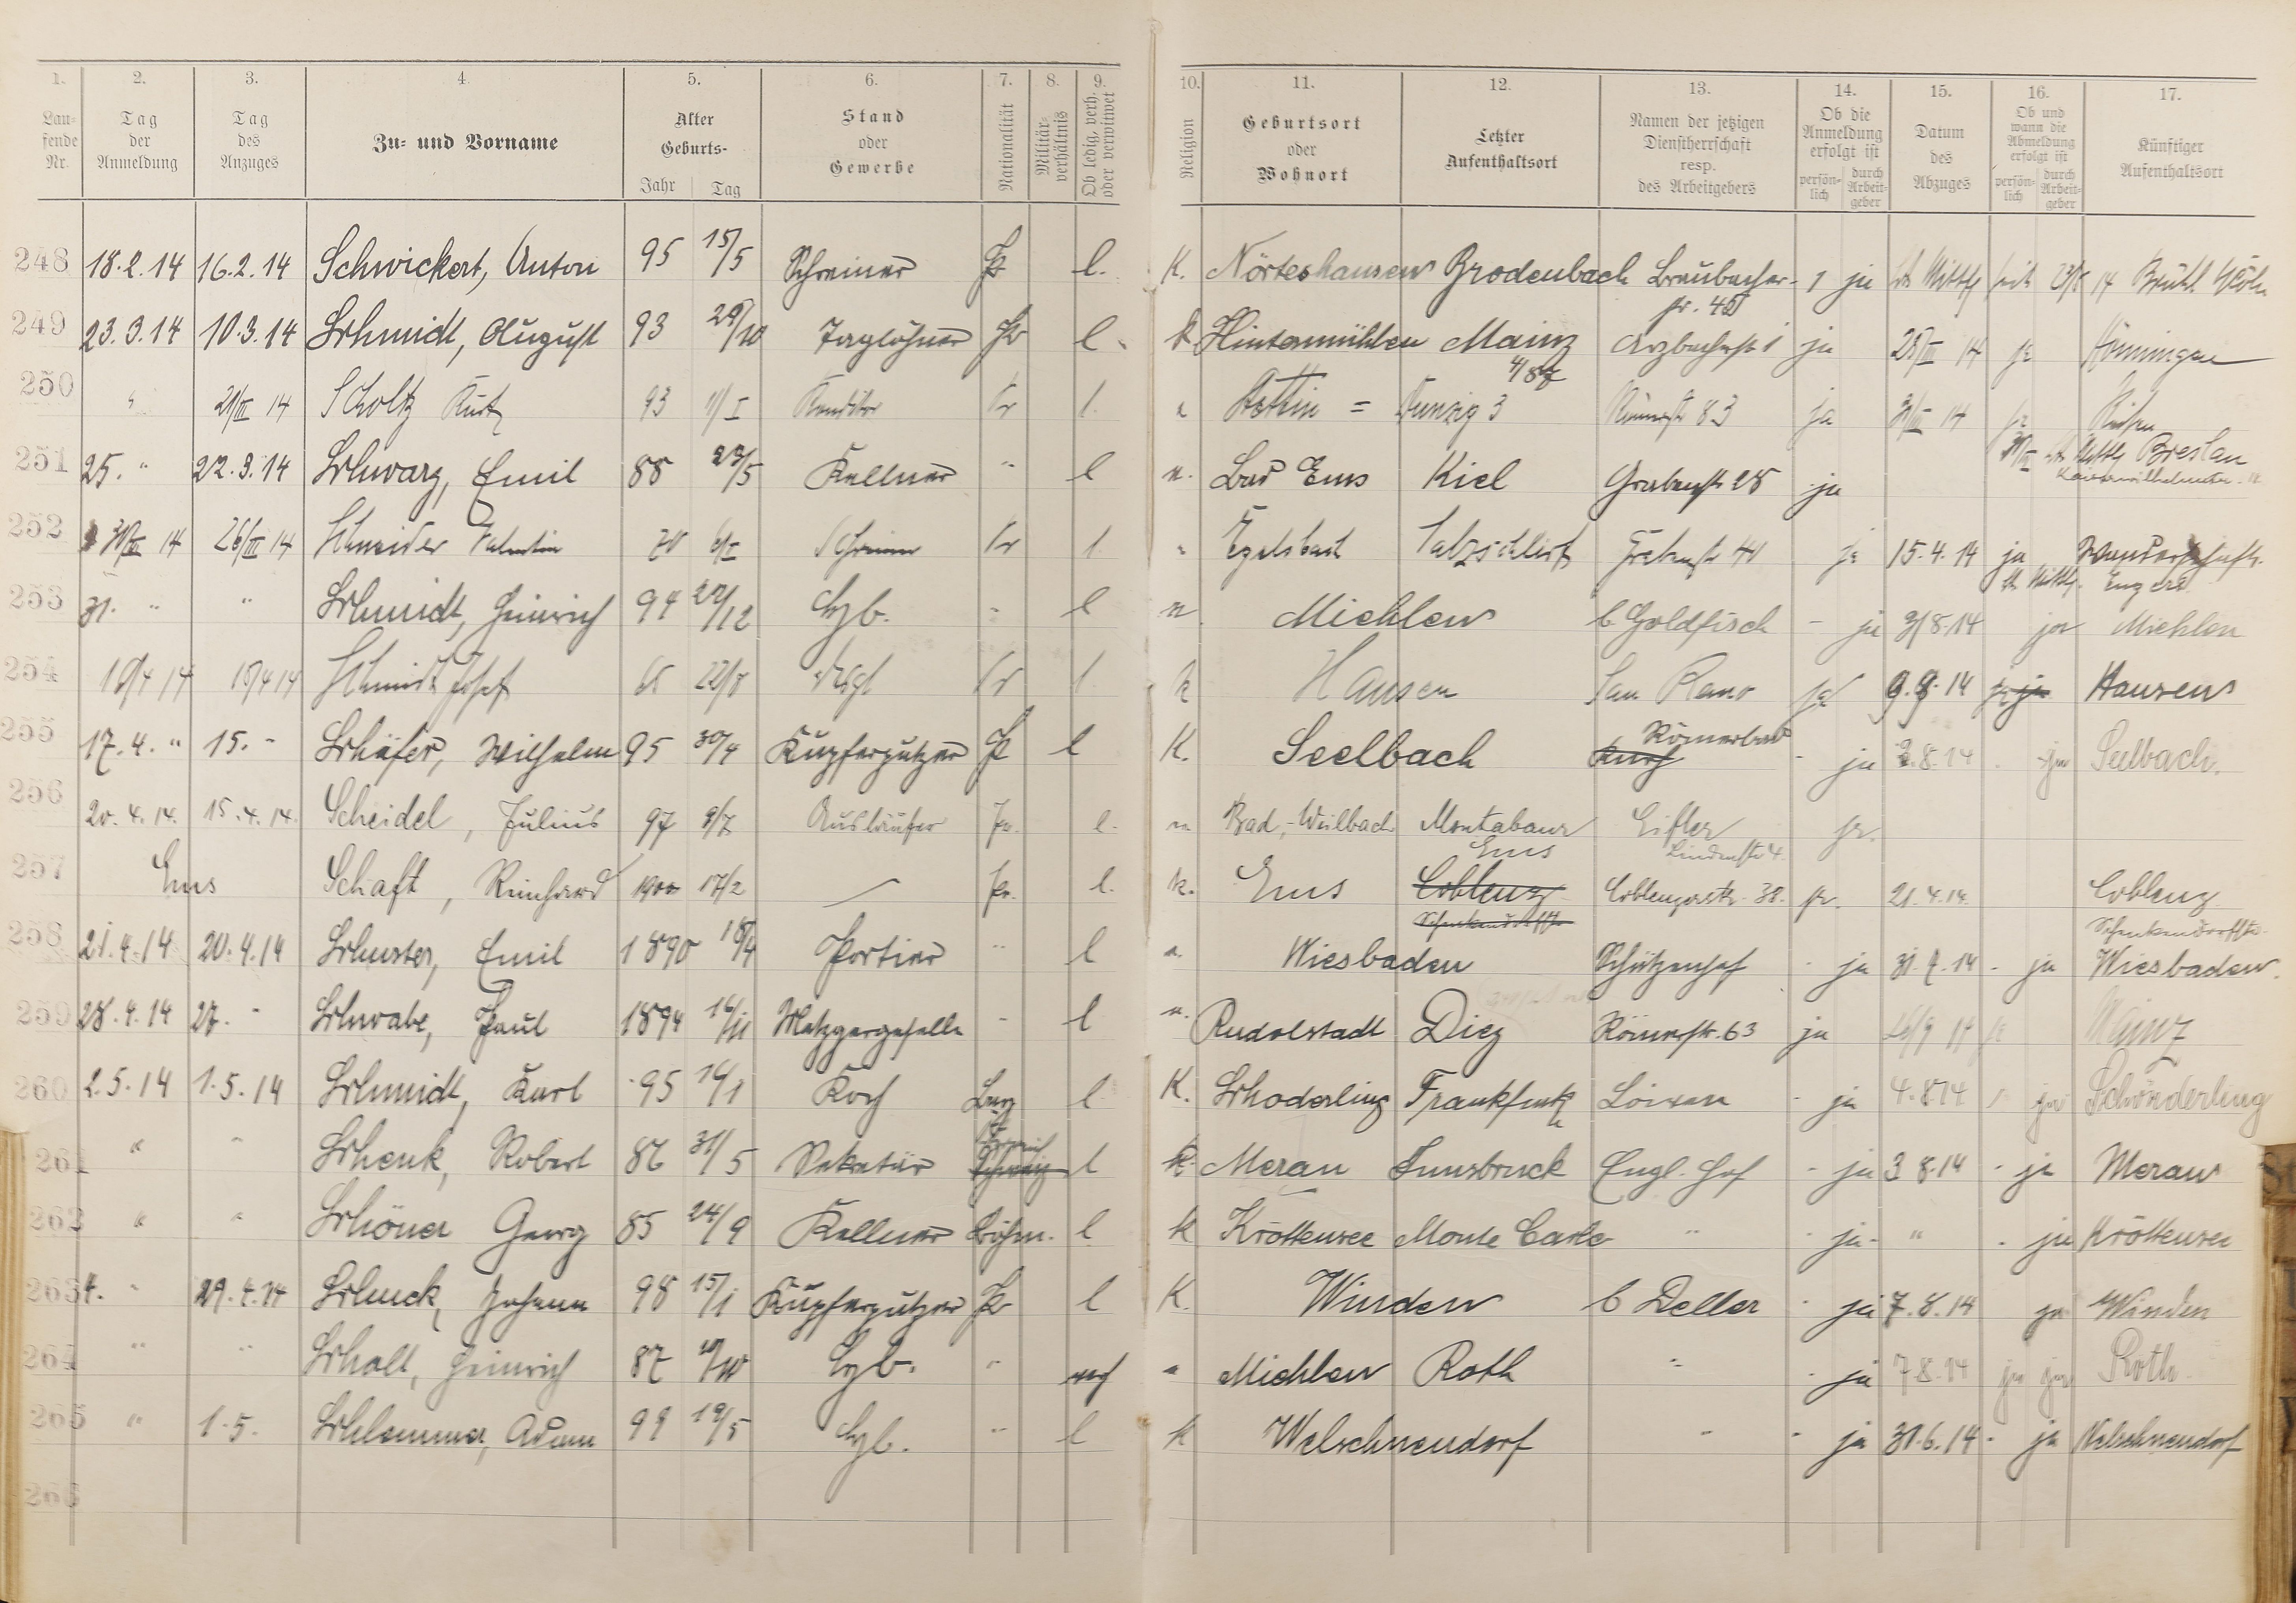 1. 2. 3. 4. 5. 6. 7. 8. 9. 10. 11. 12. 13. 14. 15. 16. 17.
Lau-fende Nr. Tag der Anmeldung Tag des Anzuges Zu- und Vorname Alter Geburts- Jahr Tag Stand oder Gewerbe Nationalität Militär-verhältnis Ob ledig, verh. oder verwitwet Religion Geburtsort oder Wohnort Letzter Aufenthaltsort Namen der jetzigen Dienstherrschaft resp. des Arbeitgebers Ob die Anmeldung erfolgt ist persön-lich durch Arbeit-geber Datum des Abzuges Ob und wann die Abmeldung erfolgt ist persön-lich durch Arbeit-geber Künftiger Aufenthaltsort
248 18.2.14 16.2.14 Schwickert, Anton 95 15/5 Schreiner Pr l. K. Nörteshausen Brodenbach Braubacher- 1 ja 14 Brühl Cöln
249 23.3.14 10.3.14 Schmidt, August 93 Taglöhner Pr l. k. Hintermühlen Mainz Arzbacherstr 1 ja 28/III 14 ja Hönningen
250 " 21/III 14 Scholtz Kurt 93 11/I Konditor Pr l. Stettin = Danzig 3 Römerstr 83 ja 31/III 14 ja
251 25. " 22.3.14 Schwarz, Emil 88 23/5 Kellner " l Bad Ems Kiel Grabenstr 28 ja Breslau
252 14 26/III 14 Schneider Valentin 70 Schreiner Pr l. " Egelsbach Salzschlirf 41 ja 15.4.14 ja Wanderschaft. Engers
253 31. " " Schmidt, Heinrich 94 22/12 Hzb. " l Miehlen b. Goldfisch - ja 3/8.14 ja Miehlen
254 14 14 Schmidt Josef 22/8 Pr l. k Hausen San Remo ja 9.8.14 ja ja Hausen
255 17.4. " 15. - Schäfer, Wilhelm 95 30/4 Kupferputzer Pr l K. Seelbach Römerbad - ja 2.8.14 - ja Seelbach.
256 20.4.14. 15.4.14. Scheidel, Julius 97 8/7 Ausläufer Pr. l. Bad-Weilbach Montabaur Eifler Lindenstr 4. ja.
257 Ems Schaft, Reinhard 1900 17/2 — Pr. l. k. Ems Ems Coblenz Coblenzerstr. 38. ja. 21.4.14. Coblenz Schenkendorfstr.
258 21.4.14 20.4.14 Schuster, Emil 1890 18/4 Portier " l Wiesbaden Schützenhof - ja 31.7.14 - ja Wiesbaden.
259 28.4.14 27. - Schwabe, Paul 1894 16/11 Metzgergeselle - l Rudolstadt Diez Römerstr. 63 ja ja Mainz
260 2.5.14 1.5.14 Schmidt, Karl 95 16/1 Koch Bay l K. Schoderling Frankfurt Löwen - ja 4.8.14 ja Schönderling
261 " " Schenk, Robert 86 31/5 Sekretär Schweiz l k. Meran Innsbruck Engl. Hof - ja 3.8.14 - ja Meran
262 " " Schöner Georg 85 24/9 Kellner Böhm. l k Kröttensee Monte Carlo " - ja - " - ja Kröttensee
263 4. " 29.4.14 Schuck, Johann 98 15/1 Kupferputzer Pr l K. Winden b Deller - ja 7.8.14 ja Winden
264 " " Scholl, Heinrich 87 Hzb. " verh " Miehlen Roth " - ja 7.8.14 ja ja Roth
265 " 1.5. Schlemmer, Adam 99 19/5 Hzb. " l k Welschneudorf " - ja 30.6.14 - ja Welschneudorf
266